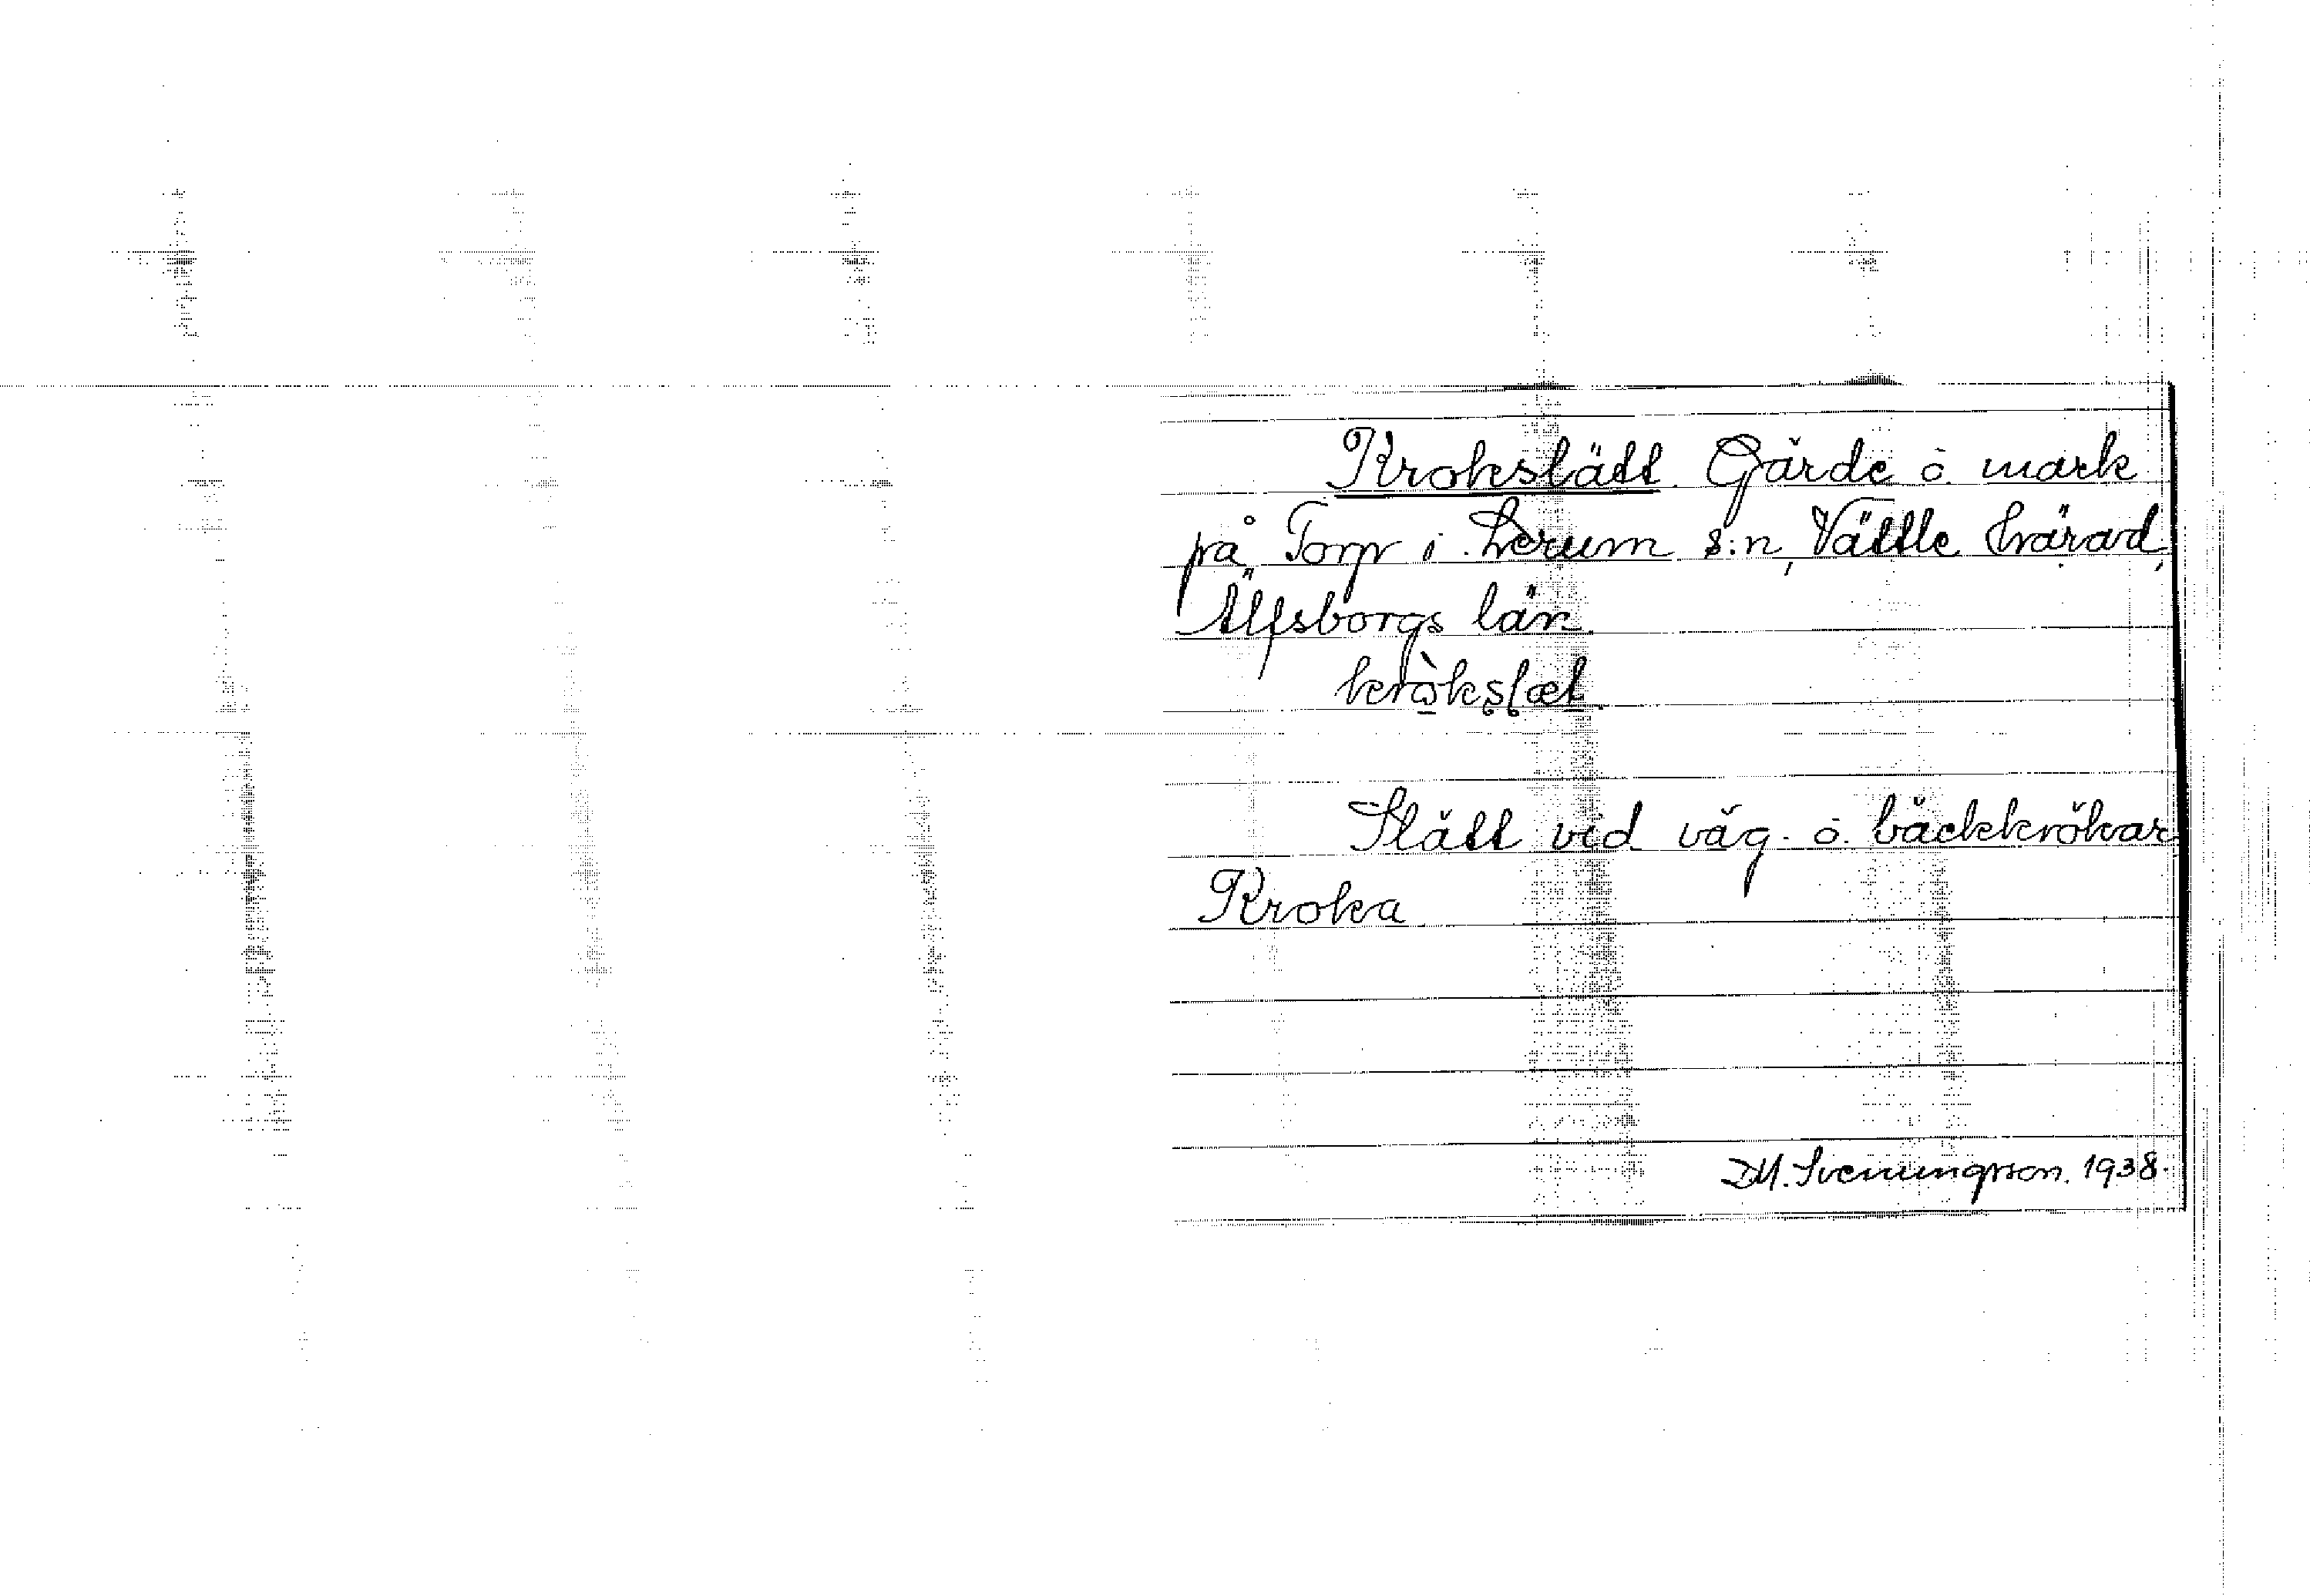 Krokslätt. Gärde o. mark
på Torp i Lerum s:n, Vättle härad,
Älfsborgs län.
Slätt vid väg- o. bäckkrökar
Kroka
D.M. Svenungsson. 1938.